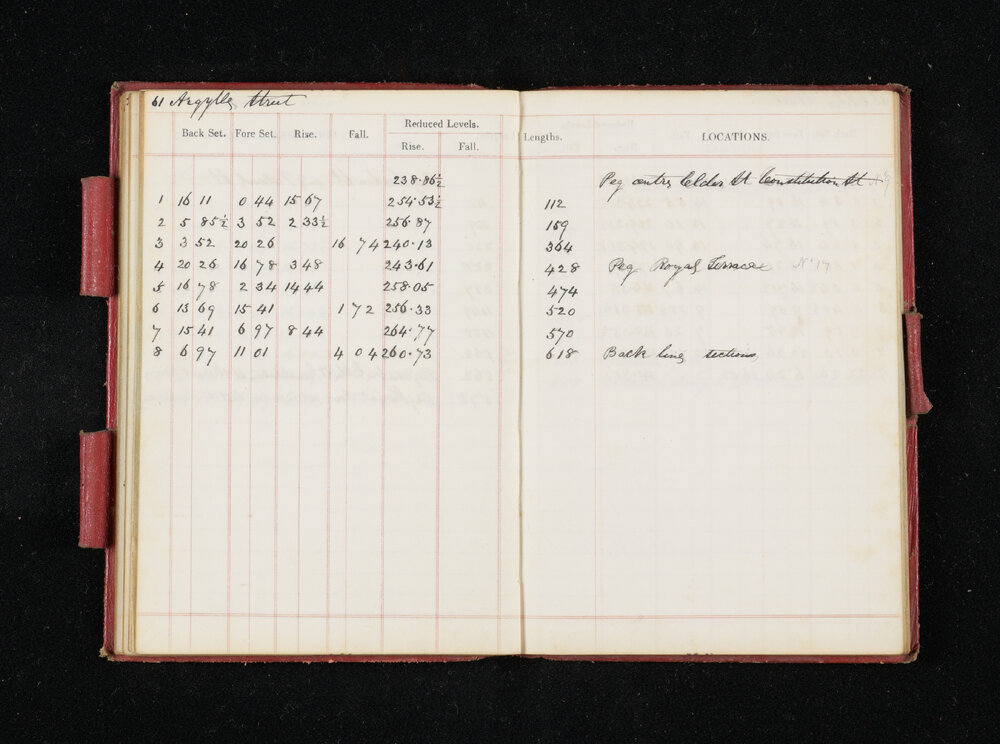 61 Argyle Street
Back Set. Fore Set. Rise. Fall. Reduced Levels. Lengths. LOCATIONS.
Rise. Fall.
238·86½ Peg centre Elder St Constitution St
1 16 11 0 44 15 67 254·53½ 112
2 5 85½ 3 52 2 33½ 256·87 159
3 3 52 20 26 16 74 240·13 364
4 20 26 16 78 3 48 243·61 428 Peg Royal Terrace No 17
5 16 78 2 34 14 44 258·05 474
6 13 69 15 41 1 72 256·33 520
7 15 41 6 97 8 44 264·77 570
8 6 97 11 01 4 04 260·73 618 Back line sections